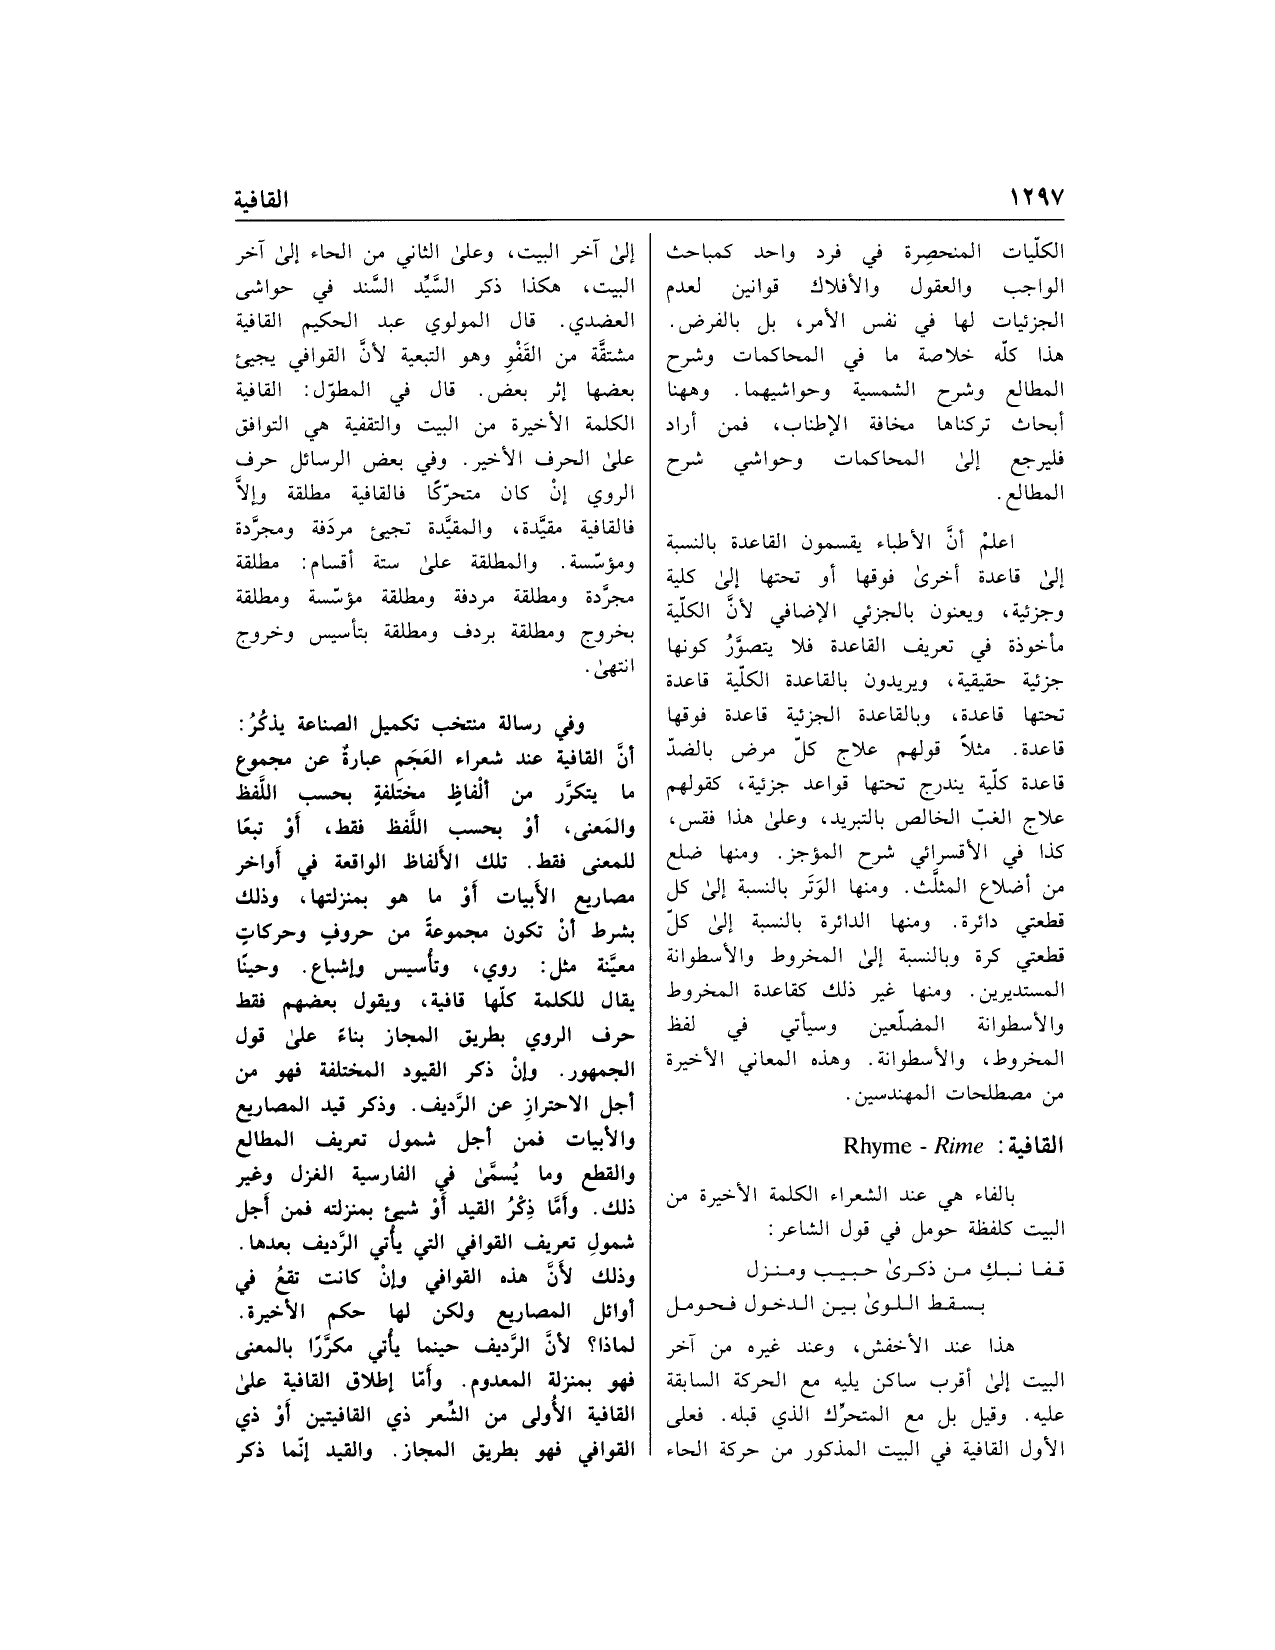 ١٢٩٧
القافية
الكلّيات المنحصِرة في فرد واحد كمباحث
الواجب والعقول والأفلاك قوانين لعدم
الجزئيات لها في نفس الأمر، بل بالفرض.
هذا كلّه خلاصة ما في المحاكمات وشرح
المطالع وشرح الشمسية وحواشيهما. وههنا
أبحاث تركناها مخافة الإطناب، فمن أراد
فليرجع إلىٰ المحاكمات وحواشي شرح
المطالع.
اعلمْ أنَّ الأطباء يقسمون القاعدة بالنسبة
إلىٰ قاعدة أخرىٰ فوقها أو تحتها إلىٰ كلية
وجزئية، ويعنون بالجزئي الإضافي لأنَّ الكلّية
مأخوذة في تعريف القاعدة فلا يتصوَّرُ كونها
جزئية حقيقية، ويريدون بالقاعدة الكلّية قاعدة
تحتها قاعدة، وبالقاعدة الجزئية قاعدة فوقها
قاعدة. مثلاً قولهم علاج كلّ مرض بالضدّ
قاعدة كلّية يندرج تحتها قواعد جزئية، كقولهم
علاج الغبّ الخالص بالتبريد، وعلىٰ هذا فقس،
كذا في الأقسرائي شرح المؤجز. ومنها ضلع
من أضلاع المثلَّث. ومنها الوَتَر بالنسبة إلىٰ كل
قطعتي دائرة. ومنها الدائرة بالنسبة إلىٰ كلّ
قطعتي كرة وبالنسبة إلىٰ المخروط والأسطوانة
المستديرين. ومنها غير ذلك كقاعدة المخروط
والأسطوانة المضلّعين وسيأتي في لفظ
المخروط، والأسطوانة. وهذه المعاني الأخيرة
من مصطلحات المهندسين.
القافية: Rhyme - Rime
بالفاء هي عند الشعراء الكلمة الأخيرة من
البيت كلفظة حومل في قول الشاعر:
قفا نبكِ من ذكرىٰ حبيب ومنزل
بسقط اللوىٰ بين الدخول فحومل
هذا عند الأخفش، وعند غيره من آخر
البيت إلىٰ أقرب ساكن يليه مع الحركة السابقة
عليه. وقيل بل مع المتحرِّك الذي قبله. فعلى
الأول القافية في البيت المذكور من حركة الحاء
إلىٰ آخر البيت، وعلىٰ الثاني من الحاء إلىٰ آخر
البيت، هكذا ذكر السَّيِّد السَّند في حواشى
العضدي. قال المولوي عبد الحكيم القافية
مشتقَّة من القَفْوِ وهو التبعية لأنَّ القوافي يجيئ
بعضها إثر بعض. قال في المطوّل: القافية
الكلمة الأخيرة من البيت والتقفية هي التوافق
علىٰ الحرف الأخير. وفي بعض الرسائل حرف
الروي إنْ كان متحرّكًا فالقافية مطلقة وإلاَّ
فالقافية مقيَّدة، والمقيَّدة تجيئ مردَفة ومجرَّدة
ومؤسّسة. والمطلقة علىٰ ستة أقسام: مطلقة
مجرَّدة ومطلقة مردفة ومطلقة مؤسّسة ومطلقة
بخروج ومطلقة بردف ومطلقة بتأسيس وخروج
انتهىٰ.
وفي رسالة منتخب تكميل الصناعة يذكُرُ:
أنَّ القافية عند شعراء العَجَم عبارةٌ عن مجموع
ما يتكرَّر من ألْفاظٍ مختَلفةٍ بحسب اللَّفظ
والمَعنى، أوْ بحسب اللَّفظ فقط، أَوْ تبعًا
للمعنى فقط. تلك الألفاظ الواقعة في أَواخر
مصاريع الأَبيات أَوْ ما هو بمنزلتها، وذلك
بشرط أنْ تكون مجموعةً من حروفٍ وحركاتٍ
معيَّنة مثل: روي، وتأسيس وإشباع. وحينًا
يقال للكلمة كلّها قافية، ويقول بعضهم فقط
حرف الروي بطريق المجاز بناءً علىٰ قول
الجمهور. وإنْ ذكر القيود المختلفة فهو من
أجل الاحترازِ عن الرَّديف. وذكر قيد المصاريع
والأبيات فمن أجل شمول تعريف المطالع
والقطع وما يُسمَّىٰ في الفارسية الغزل وغير
ذلك. وأَمَّا ذِكْرُ القيد أَوْ شيئ بمنزلته فمن أجل
شمولِ تعريف القوافي التي يأُتي الرَّديف بعدها.
وذلك لأَنَّ هذه القوافي وإنْ كانت تقعُ في
أوائل المصاريع ولكن لها حكم الأخيرة.
لماذا؟ لأنَّ الرَّديف حينما يأُتي مكرَّرًا بالمعنى
فهو بمنزلة المعدوم. وأَمّا إطلاق القافية علىٰ
القافية الأُولى من الشِّعر ذي القافيتين أَوْ ذي
القوافي فهو بطريق المجاز. والقيد إنّما ذكر